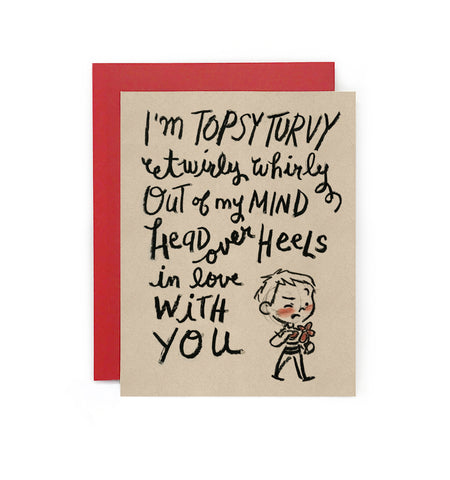 I'm TOPSY TURVY
twirly whirly
OUT of my MIND
HeaD over HEELS
in love
WiTH
YOU